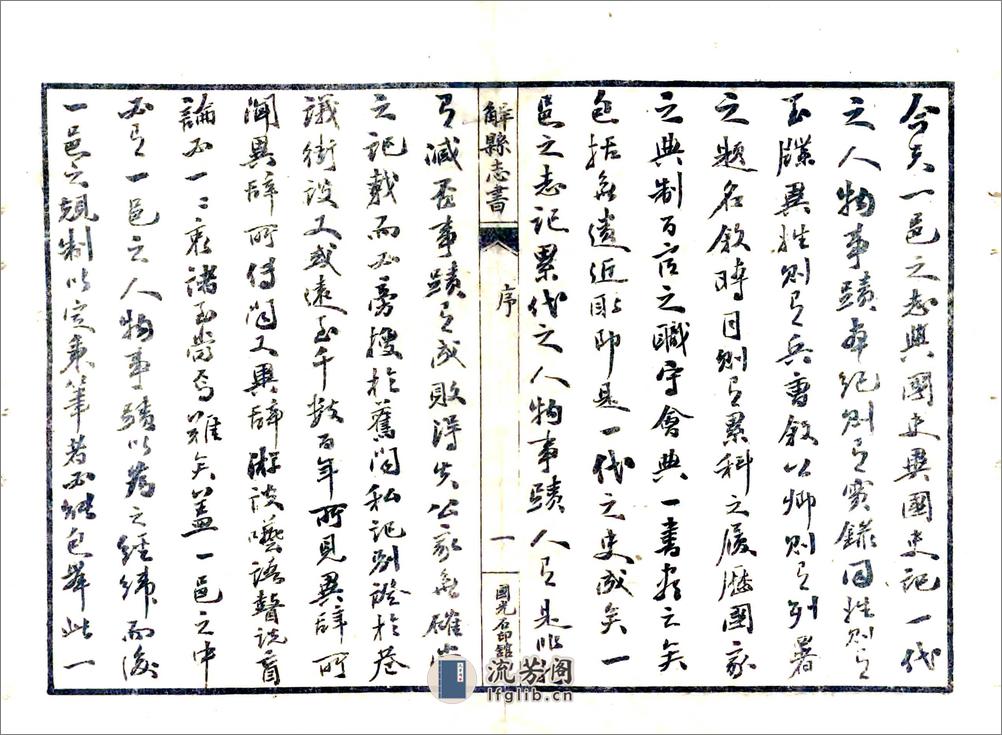 今夫一邑之志與國史異國史記一代
之人物事蹟本紀則有實錄同姓則有
玉牒異姓則有兵曹敘公卿則有列署
之題名敘時日則有累科之履歷國家
之典制百官之職守會典一書盡之矣
包括無遺近取即是一代之史成矣一
邑之志記累代之人物事蹟人有是非
解縣志書
序
一
國光石印館
有減否事蹟有成敗得失公家無確
之記載而必旁搜於舊聞私記別證於巷
議街談又或遠至千數百年所見異辭所
聞異辭所傳聞又異辭游談囈語瞽說盲
論必一二衷諸至當焉難矣蓋一邑之中
必有一邑之人物事蹟以為之經緯而後
一邑之規制以定秉筆者必能包舉此一
流芳阁
lfglib.cn